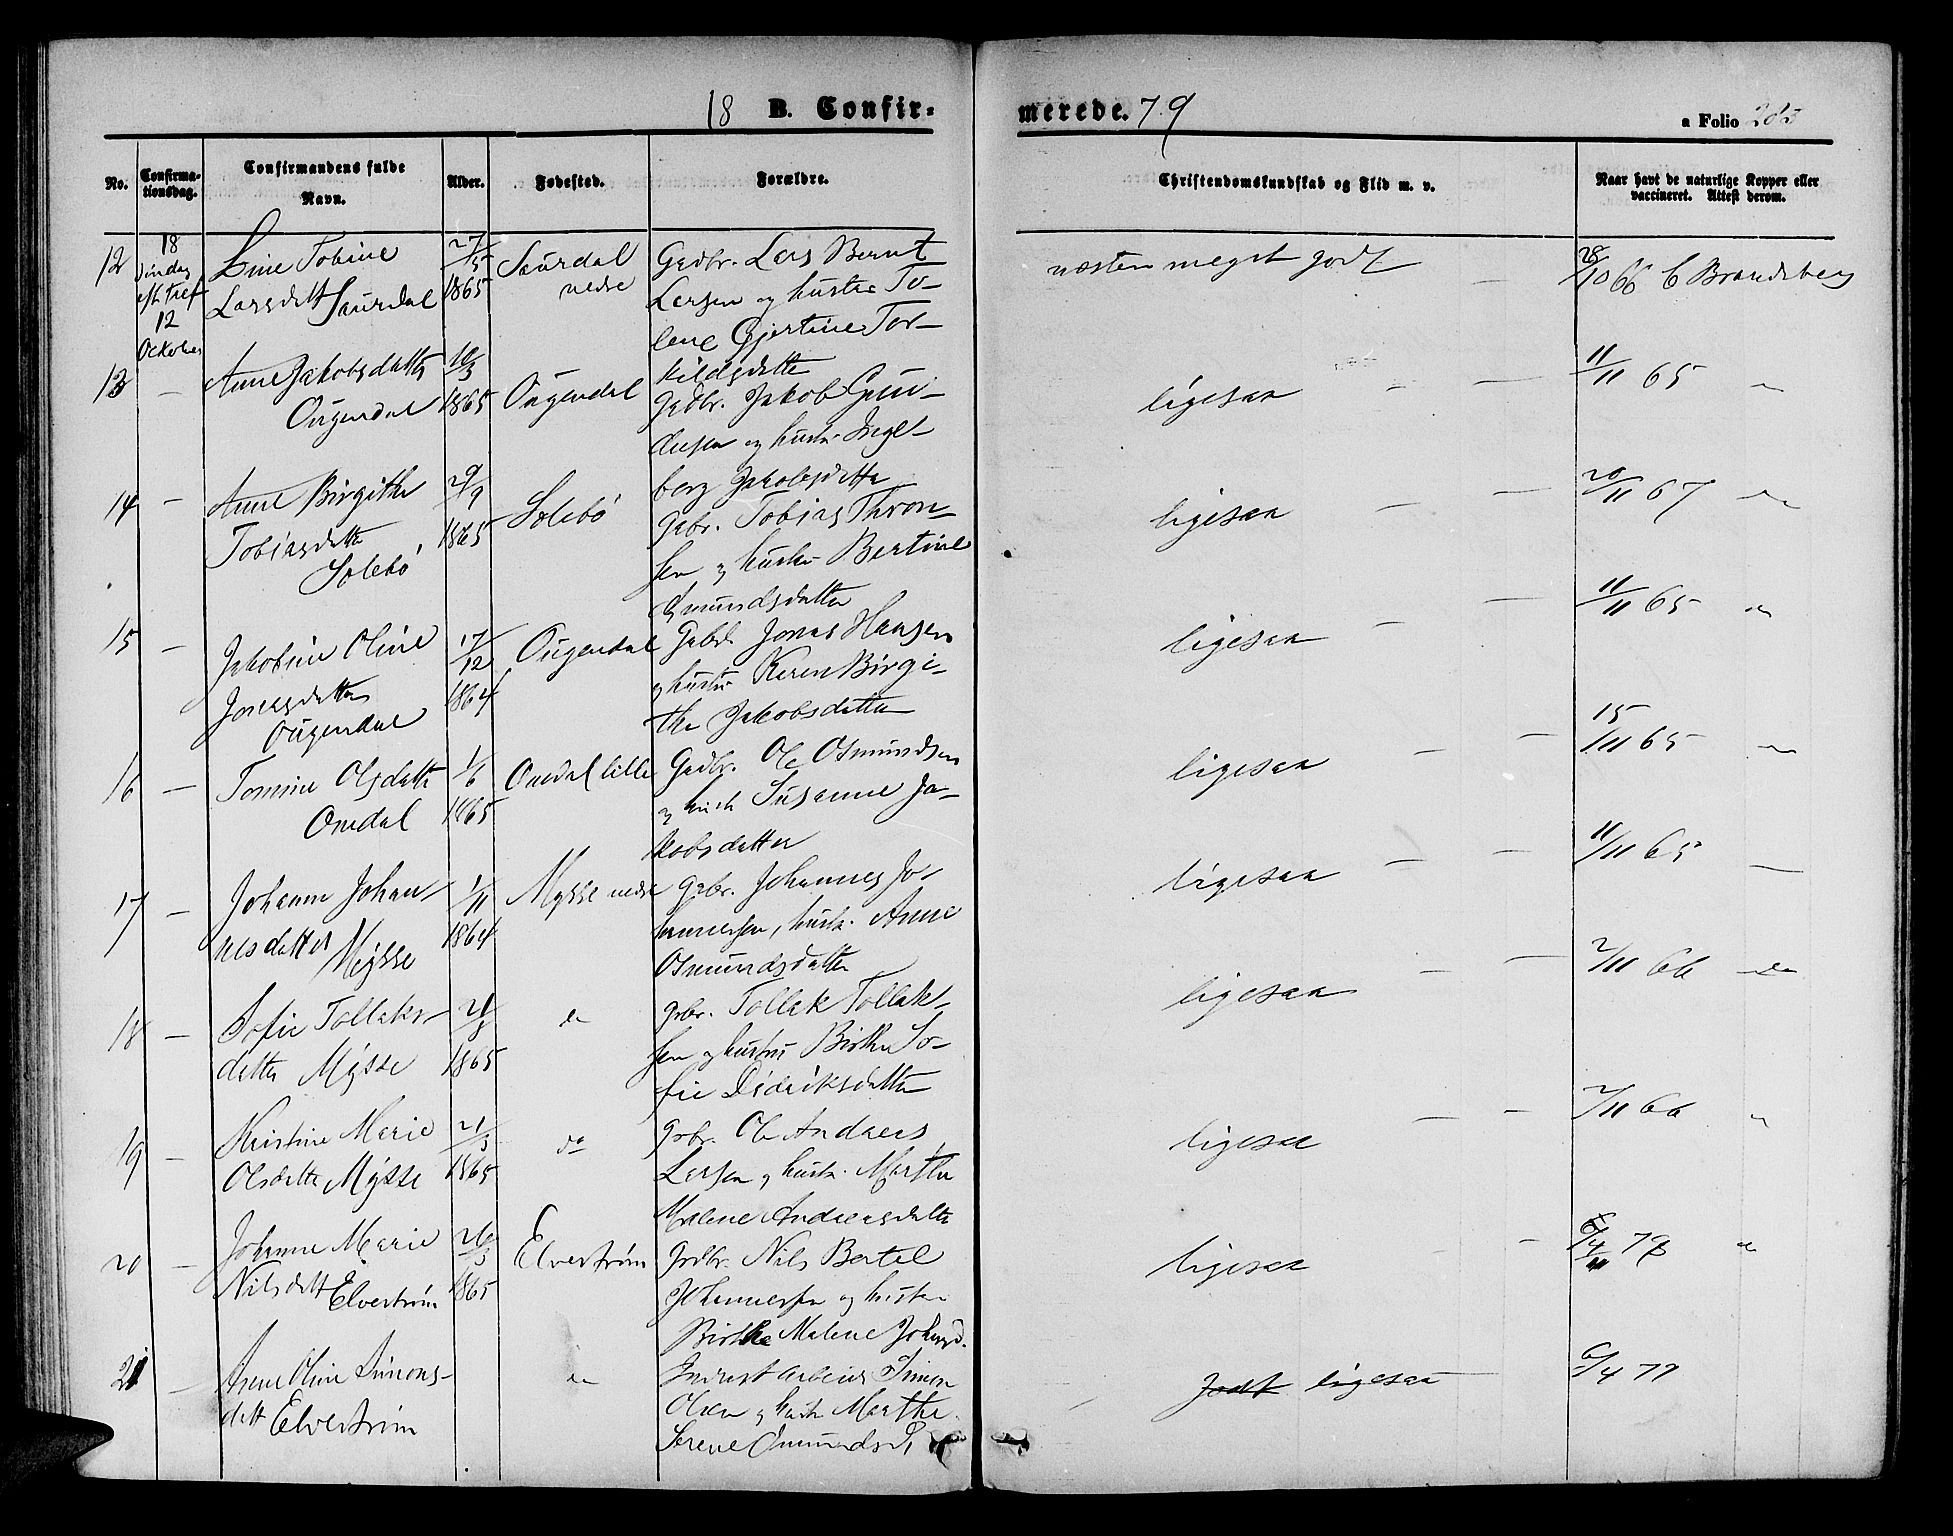 18 B. Confir-
merede. 79
a Folio
No.
Confirma-
tionsdag.
Confirmandens fulde
Navn.
Alder.
Fødested.
Forældre.
Christendomskundskab og Flid m. v.
Naar havt de naturlige Kopper eller
vaccineret. Attest derom.
12
18
Søndag
eft Tref
12
October
Line Tobine
Larsdatt Saurdal
27/5
1865
Saurdal
nedre
Gadbr. Lars Bernt
Larsen og hustru To-
lene Gjertine Tor-
kildsdatter
næsten meget godt —
28/10 66 C Brandsberg
13 —
Anne Jakobsdatter
Ougendal
10/3
1865
Ougendal
Gadbr. Jakob
og hustr. Inge-
borg Jakobsdatter
ligesaa — —
11/11 65 "
14 —
Anne Birgithe
Tobiasdatter
Solebø
29/9
1865
Solebø
Gabr. Tobias Thron-
sen og hustru Bertine
Omundsdatter
ligesaa — —
20/11 67 do
15 —
Jakobine Oline
Jonasdatter
Ougendal
17/12
1864
Ougendal
Gabr. Jonas Hansen
og hustru Karen Birgi-
the Jakobsdatter
ligesaa — —
11/11 65 "
16 —
Tomine Olsdatter
Omdal
1/6
1865
Omdal lille
Gadbr. Ole Osmundsen
og hust Susanne Ja-
kobsdatter
ligesaa — —
15/11 65 "
17 —
Johanne Johan-
nesdatter
Mysse
1/11
1864
Mysse nedre
Gabr. Johannes Jo-
hannessen, hustr. Anne
Osmundsdatter
ligesaa — —
11/11 65 —
18 —
Sofie Tollaks-
datter Mysse
1865
do
gabr. Tollak Tollak-
sen og hustru Birthe So-
fie Didriksdatter
ligesaa — —
2/11 66 do
19 —
Kristine Marie
Olsdatter Mysse
21/3
1865
do
gabr. Ole Andreas
Larsen og hustr. Marthe
Malene Andreasdatter
ligesaa — —
2/11 66 "
20 —
Johanne Marie
Nilsdatt Elvestrøm
26/3
1865
Elvestrøm
Gadbr. Nils Bertel
Johannessen og hustru
Birthe Malene Johansd.
ligesaa —
21 —
Anne Oline Simons-
datt Elvestrøm
do
Inderst arbeider Simon
Olsen og hustr Marthe
Serene Omundsd.
godt ligesaa
6/4 79